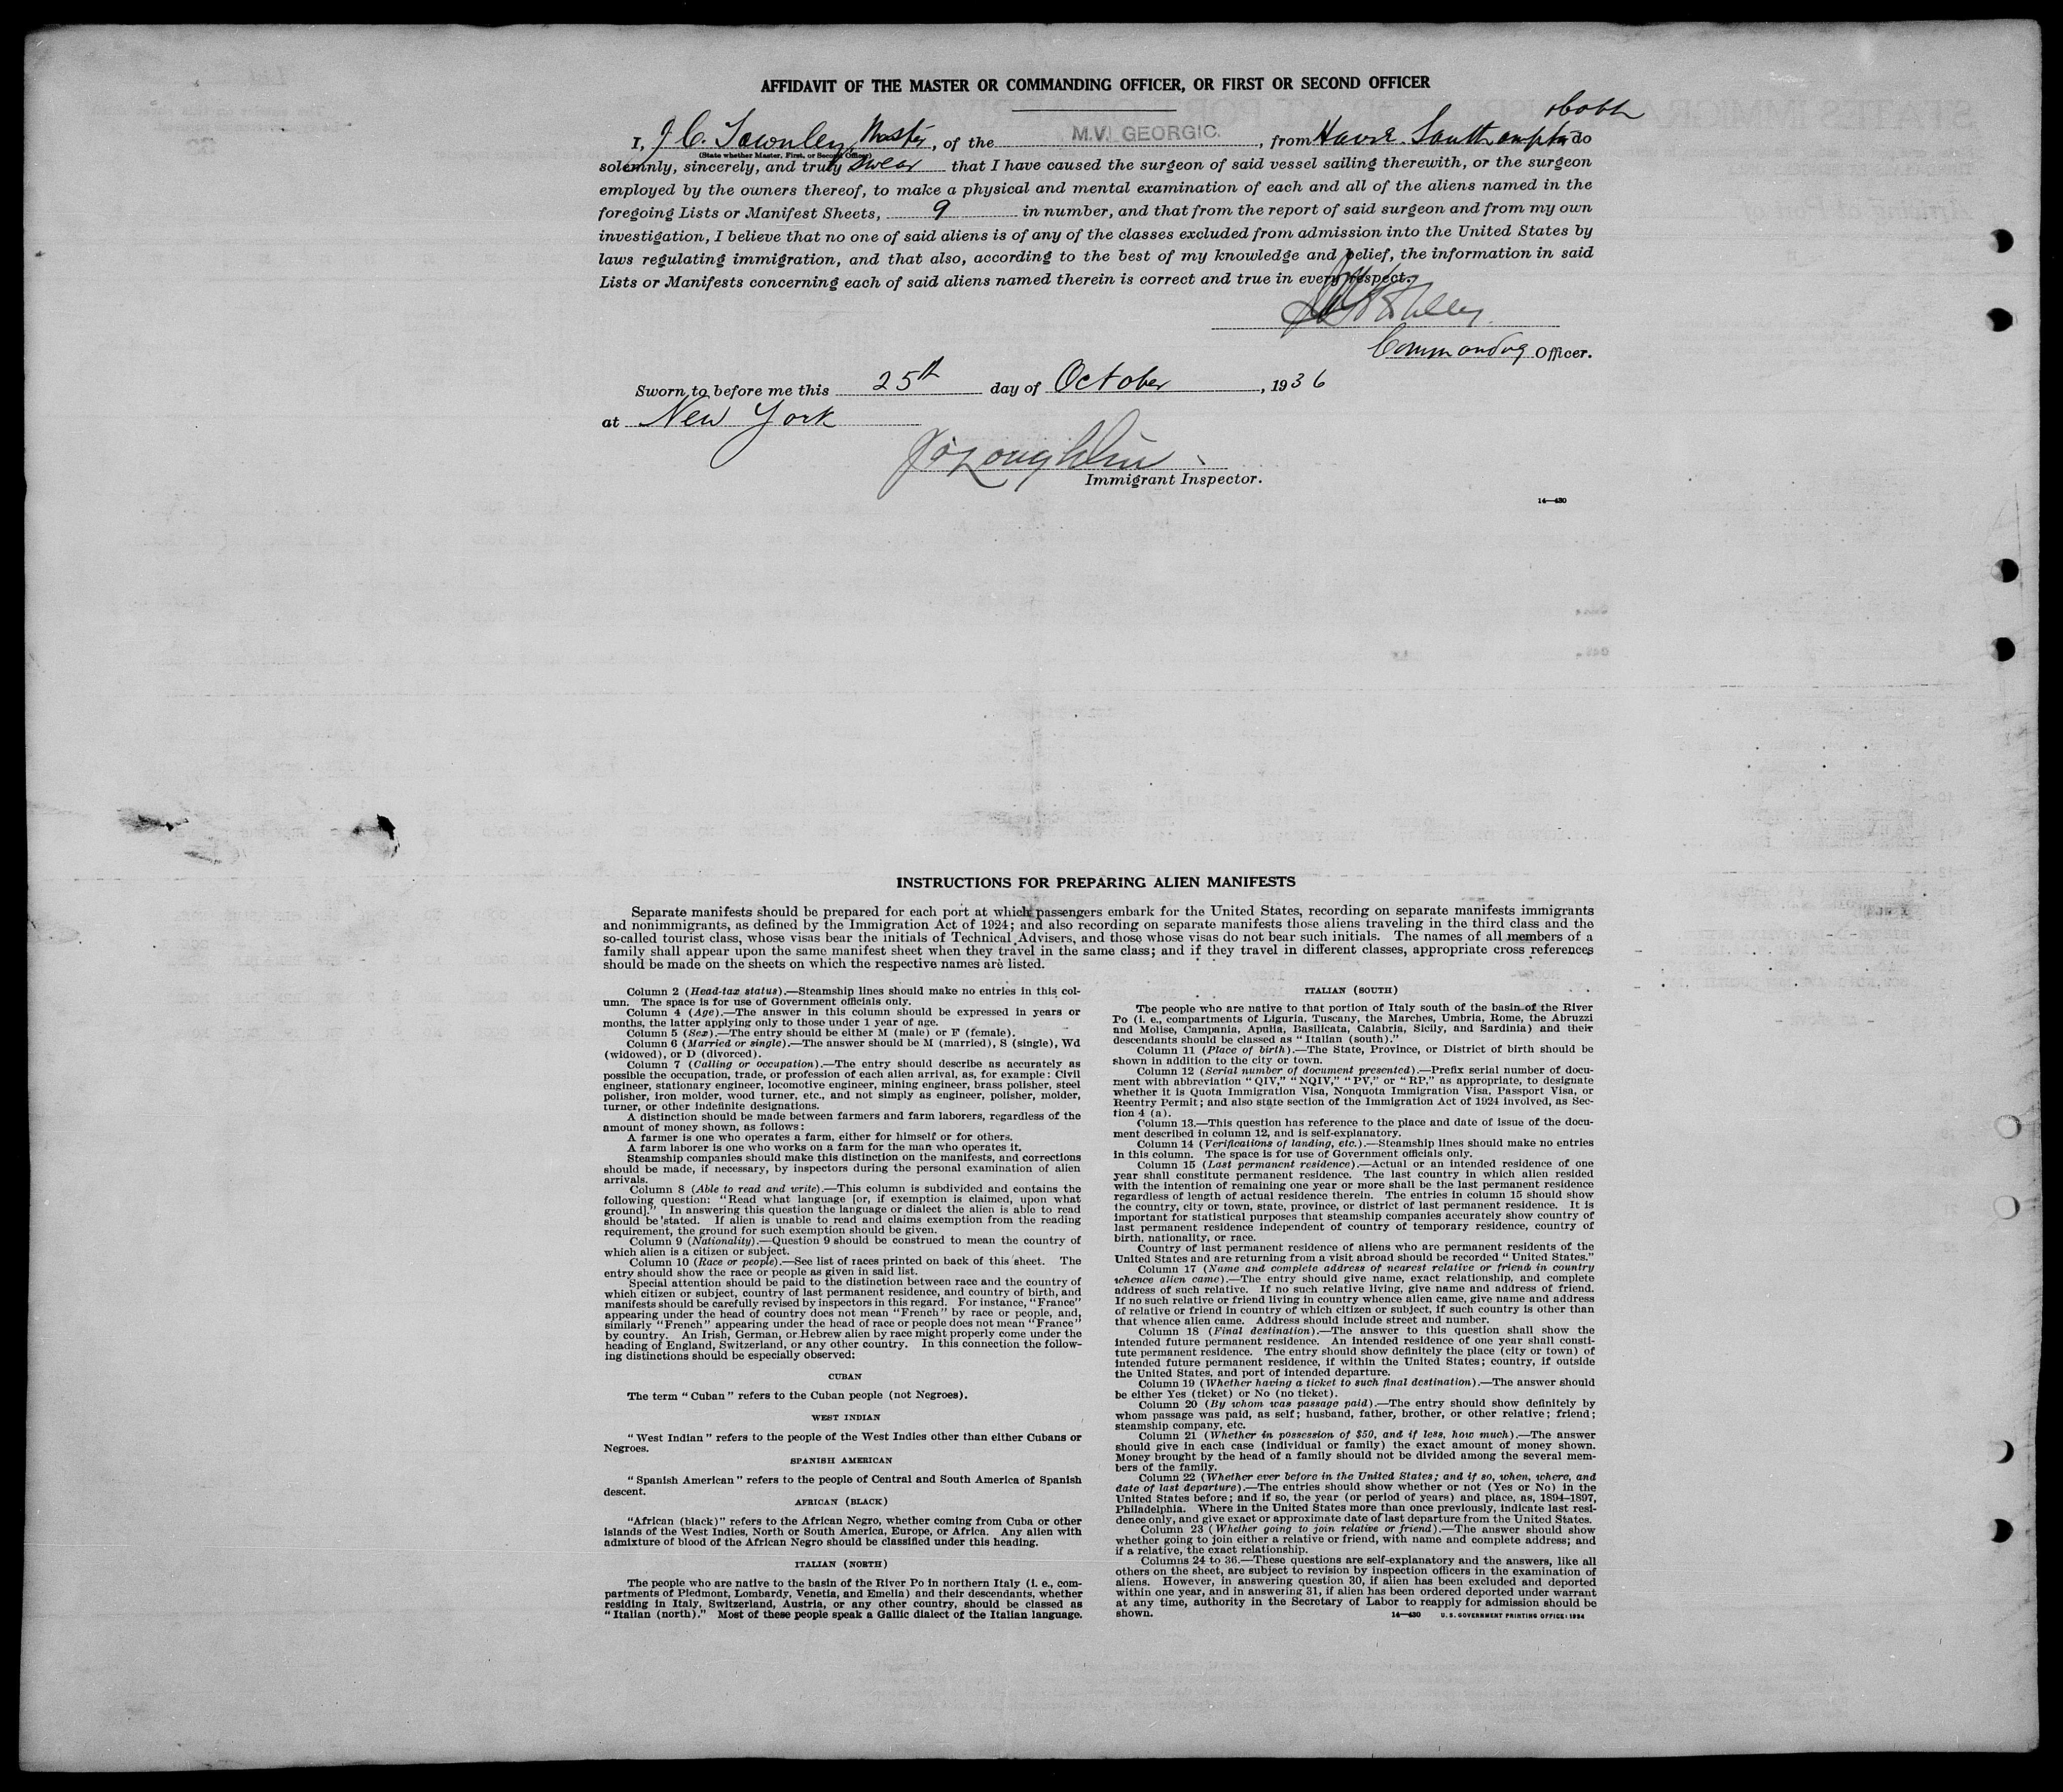 AFFIDAVIT OF THE MASTER OR COMMANDING OFFICER, OR FIRST OR SECOND OFFICER
Cobh
I, J C. Townley, Master, of the M.V. GEORGIC. , from Havre. Southampton do
(State whether Master, First, or Second Officer)
solemnly, sincerely, and truly swear that I have caused the surgeon of said vessel sailing therewith, or the surgeon
employed by the owners thereof, to make a physical and mental examination of each and all of the aliens named in the
foregoing Lists or Manifest Sheets, 9 in number, and that from the report of said surgeon and from my own
investigation, I believe that no one of said aliens is of any of the classes excluded from admission into the United States by
laws regulating immigration, and that also, according to the best of my knowledge and belief, the information in said
Lists or Manifests concerning each of said aliens named therein is correct and true in every respect.
Commanding Officer.
Sworn to before me this 25th day of October, 1936
at New York
Immigrant Inspector.
14—430
INSTRUCTIONS FOR PREPARING ALIEN MANIFESTS
Separate manifests should be prepared for each port at which passengers embark for the United States, recording on separate manifests immigrants
and nonimmigrants, as defined by the Immigration Act of 1924; and also recording on separate manifests those aliens traveling in the third class and the
so-called tourist class, whose visas bear the initials of Technical Advisers, and those whose visas do not bear such initials. The names of all members of a
family shall appear upon the same manifest sheet when they travel in the same class; and if they travel in different classes, appropriate cross references
should be made on the sheets on which the respective names are listed.
Column 2 (Head-tax status).—Steamship lines should make no entries in this col-
umn. The space is for use of Government officials only.
Column 4 (Age).—The answer in this column should be expressed in years or
months, the latter applying only to those under 1 year of age.
Column 5 (Sex).—The entry should be either M (male) or F (female).
Column 6 (Married or single).—The answer should be M (married), S (single), Wd
(widowed), or D (divorced).
Column 7 (Calling or occupation).—The entry should describe as accurately as
possible the occupation, trade, or profession of each alien arrival, as, for example: Civil
engineer, stationary engineer, locomotive engineer, mining engineer, brass polisher, steel
polisher, iron molder, wood turner, etc., and not simply as engineer, polisher, molder,
turner, or other indefinite designations.
A distinction should be made between farmers and farm laborers, regardless of the
amount of money shown, as follows:
A farmer is one who operates a farm, either for himself or for others.
A farm laborer is one who works on a farm for the man who operates it.
Steamship companies should make this distinction on the manifests, and corrections
should be made, if necessary, by inspectors during the personal examination of alien
arrivals.
Column 8 (Able to read and write).—This column is subdivided and contains the
following question: "Read what language [or, if exemption is claimed, upon what
ground]." In answering this question the language or dialect the alien is able to read
should be stated. If alien is unable to read and claims exemption from the reading
requirement, the ground for such exemption should be given.
Column 9 (Nationality).—Question 9 should be construed to mean the country of
which alien is a citizen or subject.
Column 10 (Race or people).—See list of races printed on back of this sheet. The
entry should show the race or people as given in said list.
Special attention should be paid to the distinction between race and the country of
which citizen or subject, country of last permanent residence, and country of birth, and
manifests should be carefully revised by inspectors in this regard. For instance, "France"
appearing under the head of country does not mean "French" by race or people, and,
similarly "French" appearing under the head of race or people does not mean "France"
by country. An Irish, German, or Hebrew alien by race might properly come under the
heading of England, Switzerland, or any other country. In this connection the follow-
ing distinctions should be especially observed:
CUBAN
The term "Cuban" refers to the Cuban people (not Negroes).
WEST INDIAN
"West Indian" refers to the people of the West Indies other than either Cubans or
Negroes.
SPANISH AMERICAN
"Spanish American" refers to the people of Central and South America of Spanish
descent.
AFRICAN (BLACK)
"African (black)" refers to the African Negro, whether coming from Cuba or other
islands of the West Indies, North or South America, Europe, or Africa. Any alien with
admixture of blood of the African Negro should be classified under this heading.
ITALIAN (NORTH)
The people who are native to the basin of the River Po in northern Italy (i. e., com-
partments of Piedmont, Lombardy, Venetia, and Emelia) and their descendants, whether
residing in Italy, Switzerland, Austria, or any other country, should be classed as
"Italian (north)." Most of these people speak a Gallic dialect of the Italian language.
ITALIAN (SOUTH)
The people who are native to that portion of Italy south of the basin of the River
Po (i. e., compartments of Liguria, Tuscany, the Marches, Umbria, Rome, the Abruzzi
and Molise, Campania, Apulia, Basilicata, Calabria, Sicily, and Sardinia) and their
descendants should be classed as "Italian (south)."
Column 11 (Place of birth).—The State, Province, or District of birth should be
shown in addition to the city or town.
Column 12 (Serial number of document presented).—Prefix serial number of docu-
ment with abbreviation "QIV," "NQIV," "PV," or "RP," as appropriate, to designate
whether it is Quota Immigration Visa, Nonquota Immigration Visa, Passport Visa, or
Reentry Permit; and also state section of the Immigration Act of 1924 involved, as Sec-
tion 4 (a).
Column 13.—This question has reference to the place and date of issue of the docu-
ment described in column 12, and is self-explanatory.
Column 14 (Verifications of landing, etc.).—Steamship lines should make no entries
in this column. The space is for use of Government officials only.
Column 15 (Last permanent residence).—Actual or an intended residence of one
year shall constitute permanent residence. The last country in which alien resided
with the intention of remaining one year or more shall be the last permanent residence
regardless of length of actual residence therein. The entries in column 15 should show
the country, city or town, state, province, or district of last permanent residence. It is
important for statistical purposes that steamship companies accurately show country of
last permanent residence independent of country of temporary residence, country of
birth, nationality, or race.
Country of last permanent residence of aliens who are permanent residents of the
United States and are returning from a visit abroad should be recorded "United States."
Column 17 (Name and complete address of nearest relative or friend in country
whence alien came).—The entry should give name, exact relationship, and complete
address of such relative. If no such relative living, give name and address of friend.
If no such relative or friend living in country whence alien came, give name and address
of relative or friend in country of which citizen or subject, if such country is other than
that whence alien came. Address should include street and number.
Column 18 (Final destination).—The answer to this question shall show the
intended future permanent residence. An intended residence of one year shall consti-
tute permanent residence. The entry should show definitely the place (city or town) of
intended future permanent residence, if within the United States; country, if outside
the United States, and port of intended departure.
Column 19 (Whether having a ticket to such final destination).—The answer should
be either Yes (ticket) or No (no ticket).
Column 20 (By whom was passage paid).—The entry should show definitely by
whom passage was paid, as self; husband, father, brother, or other relative; friend;
steamship company, etc.
Column 21 (Whether in possession of $50, and if less, how much).—The answer
should give in each case (individual or family) the exact amount of money shown.
Money brought by the head of a family should not be divided among the several mem-
bers of the family.
Column 22 (Whether ever before in the United States; and if so, when, where, and
date of last departure).—The entries should show whether or not (Yes or No) in the
United States before; and if so, the year (or period of years) and place, as, 1894–1897,
Philadelphia. Where in the United States more than once previously, indicate last resi-
dence only, and give exact or approximate date of last departure from the United States.
Column 23 (Whether going to join relative or friend).—The answer should show
whether going to join either a relative or friend, with name and complete address; and
if a relative, the exact relationship.
Columns 24 to 36.—These questions are self-explanatory and the answers, like all
others on the sheet, are subject to revision by inspection officers in the examination of
aliens. However, in answering question 30, if alien has been excluded and deported
within one year, and in answering 31, if alien has been ordered deported under warrant
at any time, authority in the Secretary of Labor to reapply for admission should be
shown.
14—430 U. S. GOVERNMENT PRINTING OFFICE: 1934